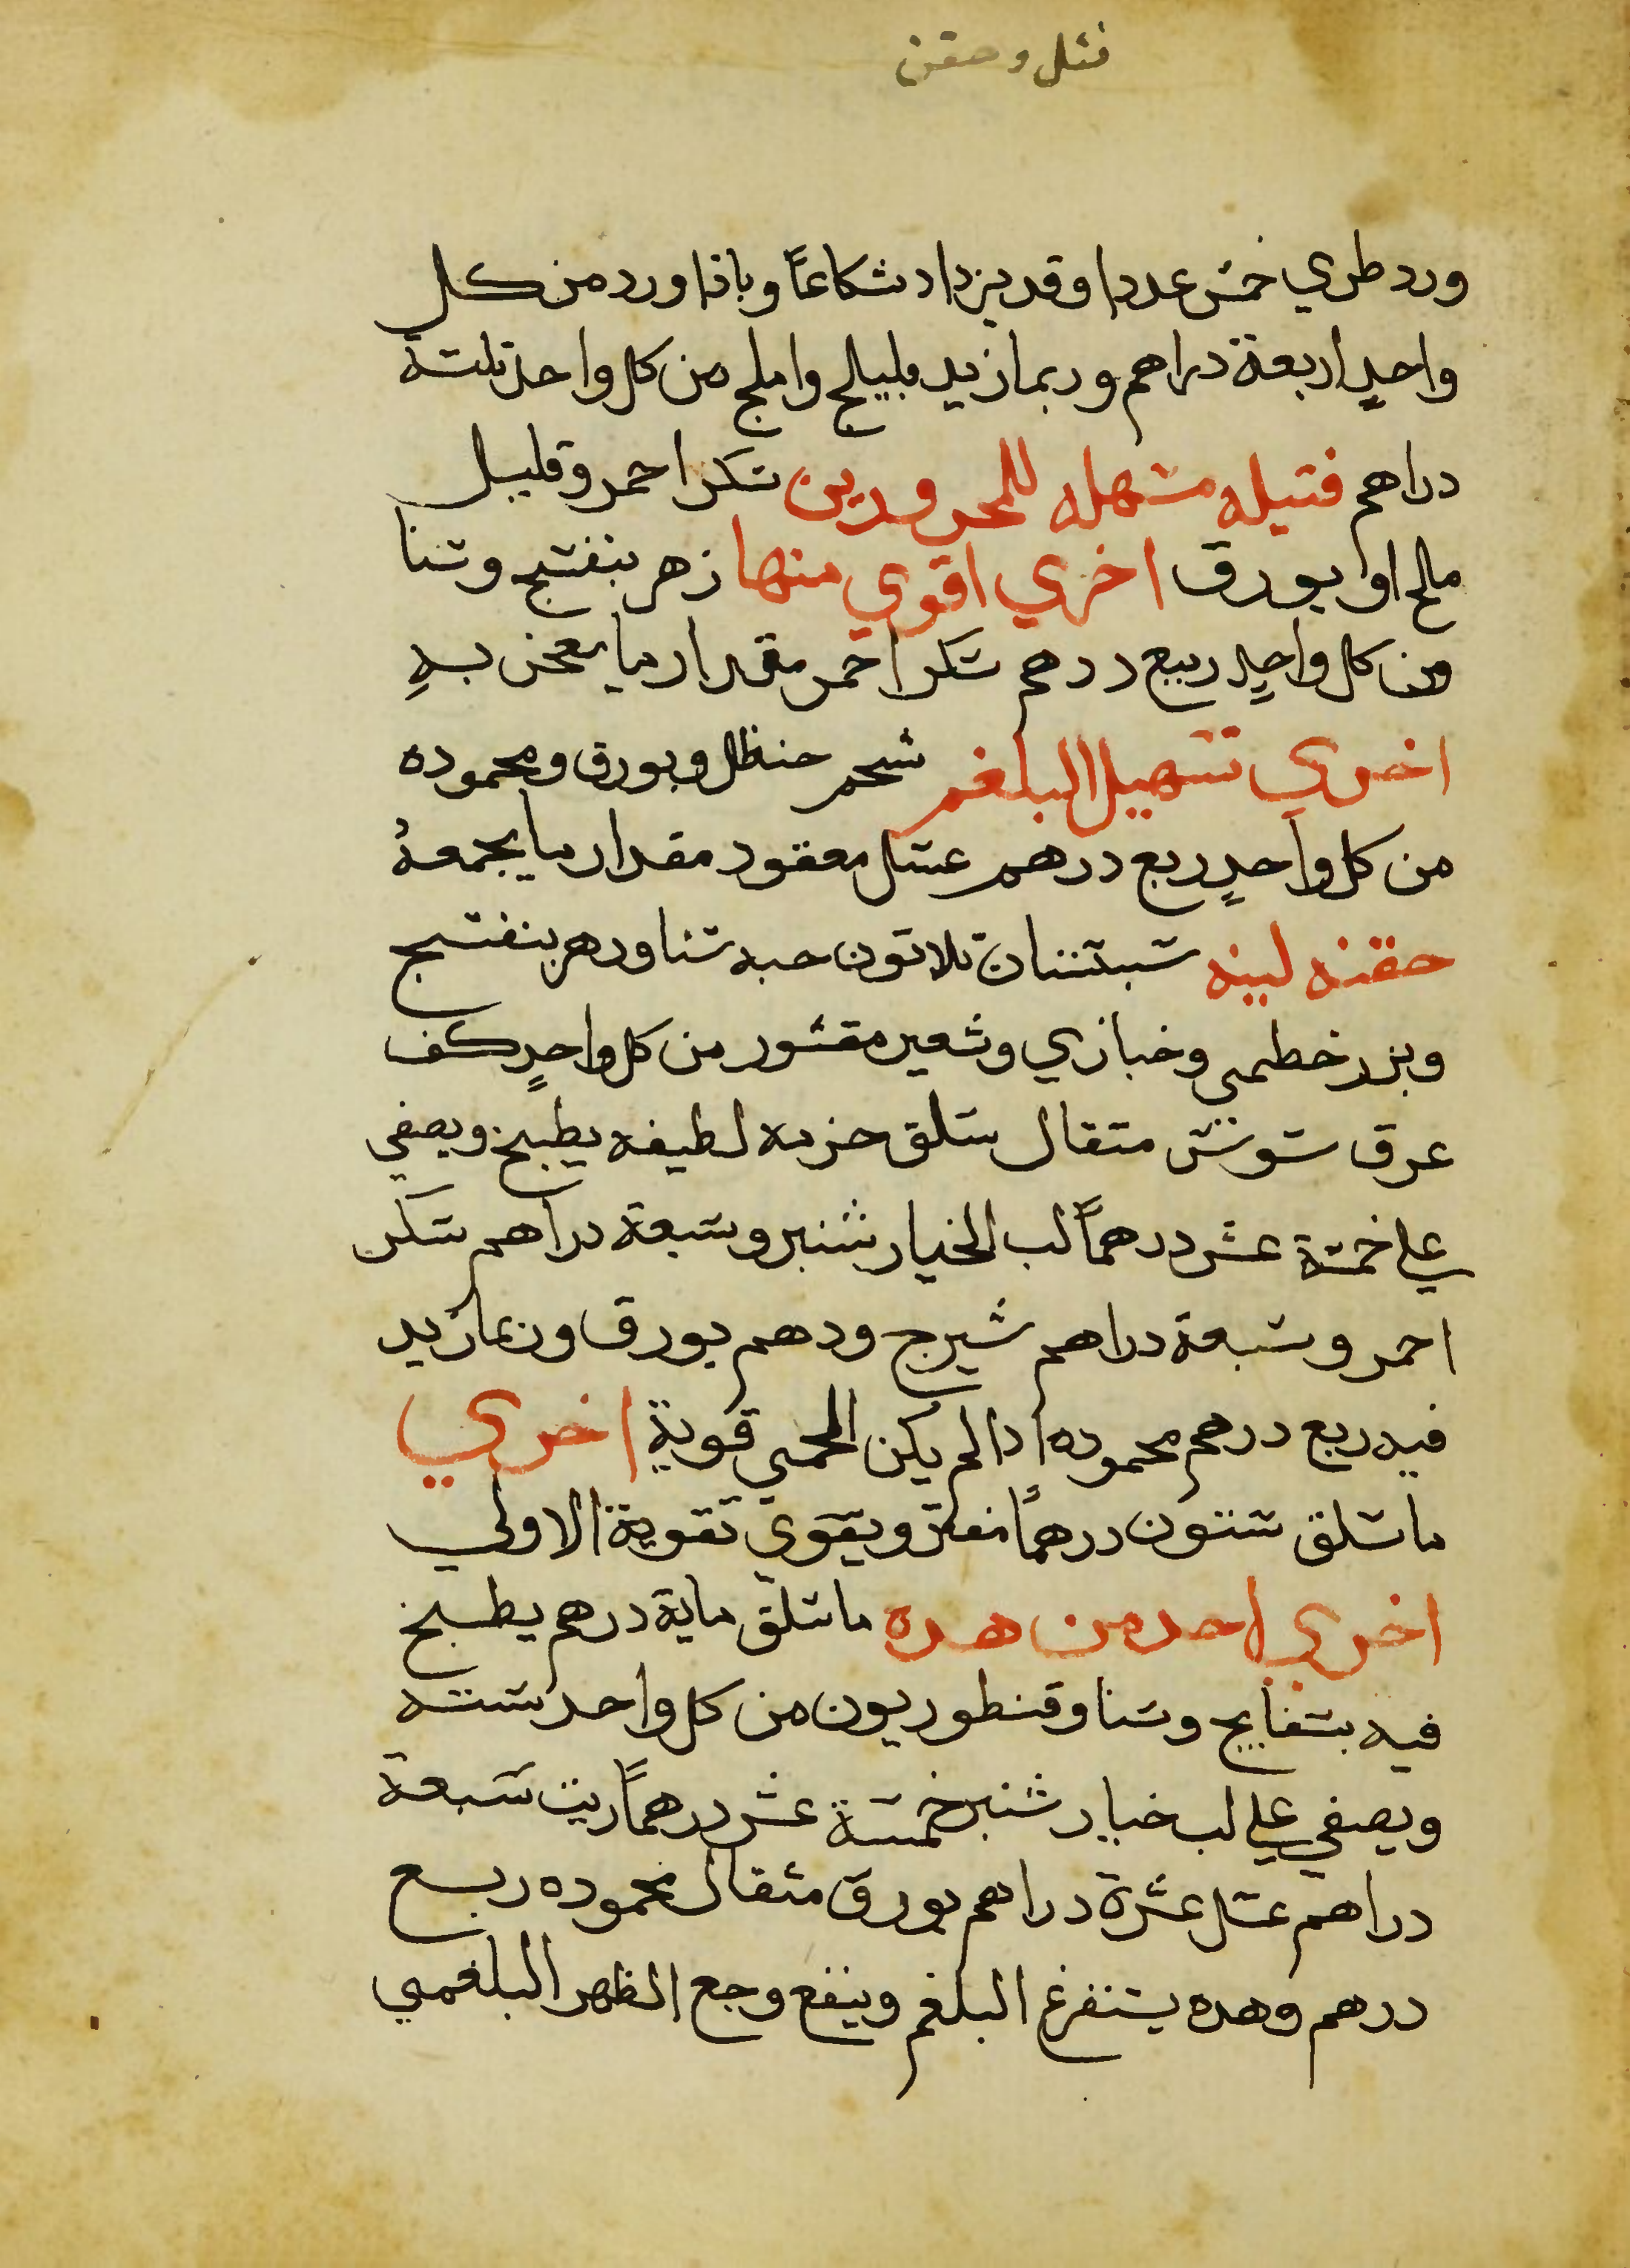 فتل وحقن
ورد طري خمس عددا وقد يزداد شكاعاً وباذاورد من كل
واحدٍ اربعة دراهم وربما زيد بليلج واملج من كل واحد تلتة
دراهم فتيله مسهله للمحرورين سكر احمر وقليل
ملح او بورق اخري اقوي منها زهر بنفسج وسنا
من كل واحدٍ ربع درهم سكر احمر مقدار ما يعجن بهِ
اخري تسهيل البلغم شحم حنظل وبورق ومحموده
من كل واحدٍ ربع درهم عسل معقود مقدار ما يجمعهُ
حقنه لينه سبستان تلاتون حبه سنا وزهر بنفسج
وبزر خطمي وخبازي وشعير مقشور من كل واحدٍ كف
عرق سوس متقال سلق حزمه لطيفه يطبخ ويصفي
علي خمسة عشر درهماً لب الخيار شنبر وسبعة دراهم سكر
احمر وسبعة دراهم شيرج ودهم بورق وربما زيد
فيه ربع درهم محموده ادا لم يكن الحمي قوية اخري
ما سلق ستون درهماً مفتر ويقوي تقوية الاولي
اخري احد من هده ما سلق ماية درهم يطبخ
فيه بسفايج وسنا وقنطوريون من كل واحد ستة
ويصفي علي لب خيار شنبر خمسة عشر درهماً زيت سبعة
دراهم عسل عشرة دراهم بورق مثقال محموده ربع
درهم وهده يستفرغ البلغم وينفع وجع الظهر البلغمي